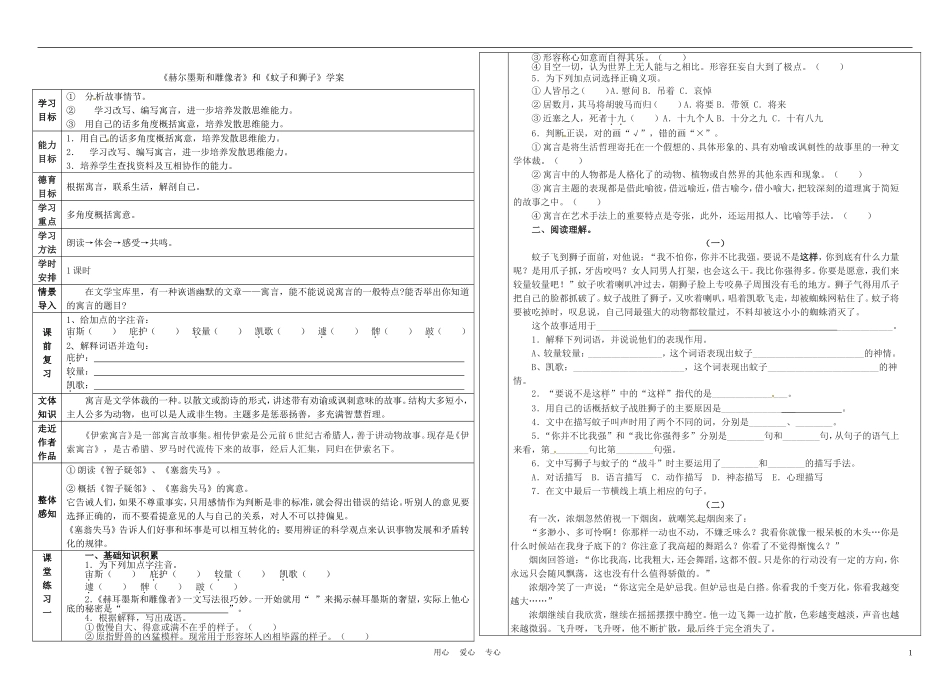 《赫尔墨斯和雕像者》和《蚊子和狮子》学案
学习目标
① 分析故事情节。
② 学习改写、编写寓言，进一步培养发散思维能力。
③ 用自己的话多角度概括寓意，培养发散思维能力。
能力目标
1．用自己的话多角度概括寓意，培养发散思维能力。
2．  学习改写、编写寓言，进一步培养发散思维能力。
3．培养学生查找资料及互相协作的能力。
德育目标
根据寓言，联系生活，解剖自己。
学习重点
多角度概括寓意。
学习方法
朗读→体会→感受→共鸣。
学时安排
1 课时
情景导入
在文学宝库里，有一种诙谐幽默的文章——寓言，能不能说说寓言的一般特点?能否举出你知道
的寓言的题目?
课前复习
1、给加点的字注音：
宙斯（    ） 庇护（    ） 较量（    ） 凯歌（    ） 遽（    ） 髀（    ） 跛（    ）
2、解释词语并造句：
庇护：
较量：
凯歌：
文体知识
寓言是文学体裁的一种。以散文或韵诗的形式，讲述带有劝谕或讽刺意味的故事。结构大多短小，
主人公多为动物，也可以是人或非生物。主题多是惩恶扬善，多充满智慧哲理。
走近作者作品
《伊索寓言》是一部寓言故事集。相传伊索是公元前 6 世纪古希腊人，善于讲动物故事。现存是《伊
索寓言》，是古希腊、罗马时代流传下来的故事，经后人汇集，同归在伊索名下。
整体感知
① 朗读《智子疑邻》、《塞翁失马》。
② 概括《智子疑邻》、《塞翁失马》的寓意。
它告诫人们，如果不尊重事实，只用感情作为判断是非的标准，就会得出错误的结论。听别人的意见要
选择正确的，而不要看提意见的人与自己的关系，对人不可以持偏见。
《塞翁失马》告诉人们好事和坏事是可以相互转化的：要用辨证的科学观点来认识事物发展和矛盾转
化的规律。
课堂练习一
一、基础知识积累
1．为下列加点字注音。
宙斯（    ） 庇护（    ） 较量（    ） 凯歌（    ）
遽（    ） 髀（    ） 跛（    ）
2．《赫耳墨斯和雕像者》一文写法很巧妙。一开始就用“  ”来揭示赫耳墨斯的奢望，实际上他心
底的秘密是“____________________”。
4．根据解释，写出成语。
①傲慢自大、得意或满不在乎的样子。（    ）
②原指野兽的凶猛模样。现常用于形容坏人凶相毕露的样子。（    ）
③ 形容称心如意而自得其乐。（    ）
④ 目空一切，认为世界上无人能与之相比。形容狂妄自大到了极点。（    ）
5．为下列加点词选择正确义项。
① 人皆吊之（    ）A. 慰问 B. 吊着 C. 哀悼
② 居数月，其马将胡骏马而归（    ）A. 将要 B. 带领 C. 将来
③ 近塞之人，死者十九（    ）A. 十九个人 B. 十分之九 C. 十有八九
6．判断正误，对的画“√”，错的画“×”。
① 寓言是将生活哲理寄托在一个假想的、具体形象的、具有劝喻或讽制性的故事里的一种文
学体裁。（    ）
② 寓言中的人物都是人格化了的动物、植物或自然界的其他东西和现象。（    ）
③ 寓言主题的表现都是借此喻彼，借远喻近，借古喻今，借小喻大，把较深刻的道理寓于简短
的故事之中。（    ）
④ 寓言在艺术手法上的重要特点是夸张，此外，还运用拟人、比喻等手法。（    ）
二、阅读理解。
（一）
蚊子飞到狮子面前，对他说：“我不怕你，你并不比我强。要说不是这样，你到底有什么力量
呢？是用爪子抓，牙齿咬吗？女人同男人打架，也会这么干。我比你强得多。你要是愿意，我们来
较量较量吧！”蚊子吹着喇叭冲过去，朝狮子脸上专咬鼻子周围没有毛的地方。狮子气得用爪子
把自己的脸都抓破了。蚊子战胜了狮子，又吹着喇叭，唱着凯歌飞走，却被蜘蛛网粘住了。蚊子将
要被吃掉时，叹息说，自己同最强大的动物都较量过，不料却被这小小的蜘蛛消灭了。
这个故事适用于____________________ ____________________。
1．解释下列词语，并说说他们的表现作用。
A、较量较量：______________，这个词语表现出蚊子____________________的神情。
B、凯歌：____________________，这个词表现出蚊子____________________的神
情。
2．“要说不是这样”中的“这样”指代的是______________。
3．用自己的话概括蚊子战胜狮子的主要原因是__________ __________。
4．文中在描写蚊子叫声时用了两个不同的词，分别是______、______。
5．“你并不比我强”和“我比你强得多”分别是______句和______句，从句子的语气上
来看，第______句比第______句强。
6．文中写狮子与蚊子的“战斗”时主要运用了______和______的描写手法。
A．对话描写  B．语言描写  C．动作描写  D．神态描写  E．心理描写
7．在文中最后一节横线上填上相应的句子。
（二）
有一次，浓烟忽然俯视一下烟囱，就嘲笑起烟囱来了：
“多渺小、多可怜啊！你那样一动也不动，不嫌乏味么？我看你就像一根呆板的木头…你是
什么时候站在我身子底下的？你注意了我高超的舞蹈么？你看了不觉得惭愧么？”
烟囱回答道：“你比我高，比我粗大，还会舞蹈，这都不假。只是你的行动没有一定的方向，你
永远只会随风飘荡，这也没有什么值得骄傲的。”
浓烟冷笑了一声说：“你这完全是妒忌我。但妒忌也是白搭。你看我的千变万化，你看我越变
越大……”
浓烟继续自我欣赏，继续在摇摇摆摆中腾空。他一边飞舞一边扩散，色彩越变越淡，声音也越
来越微弱。飞升呀，飞升呀，他不断扩散，最后终于完全消失了。
用心    爱心    专心
1